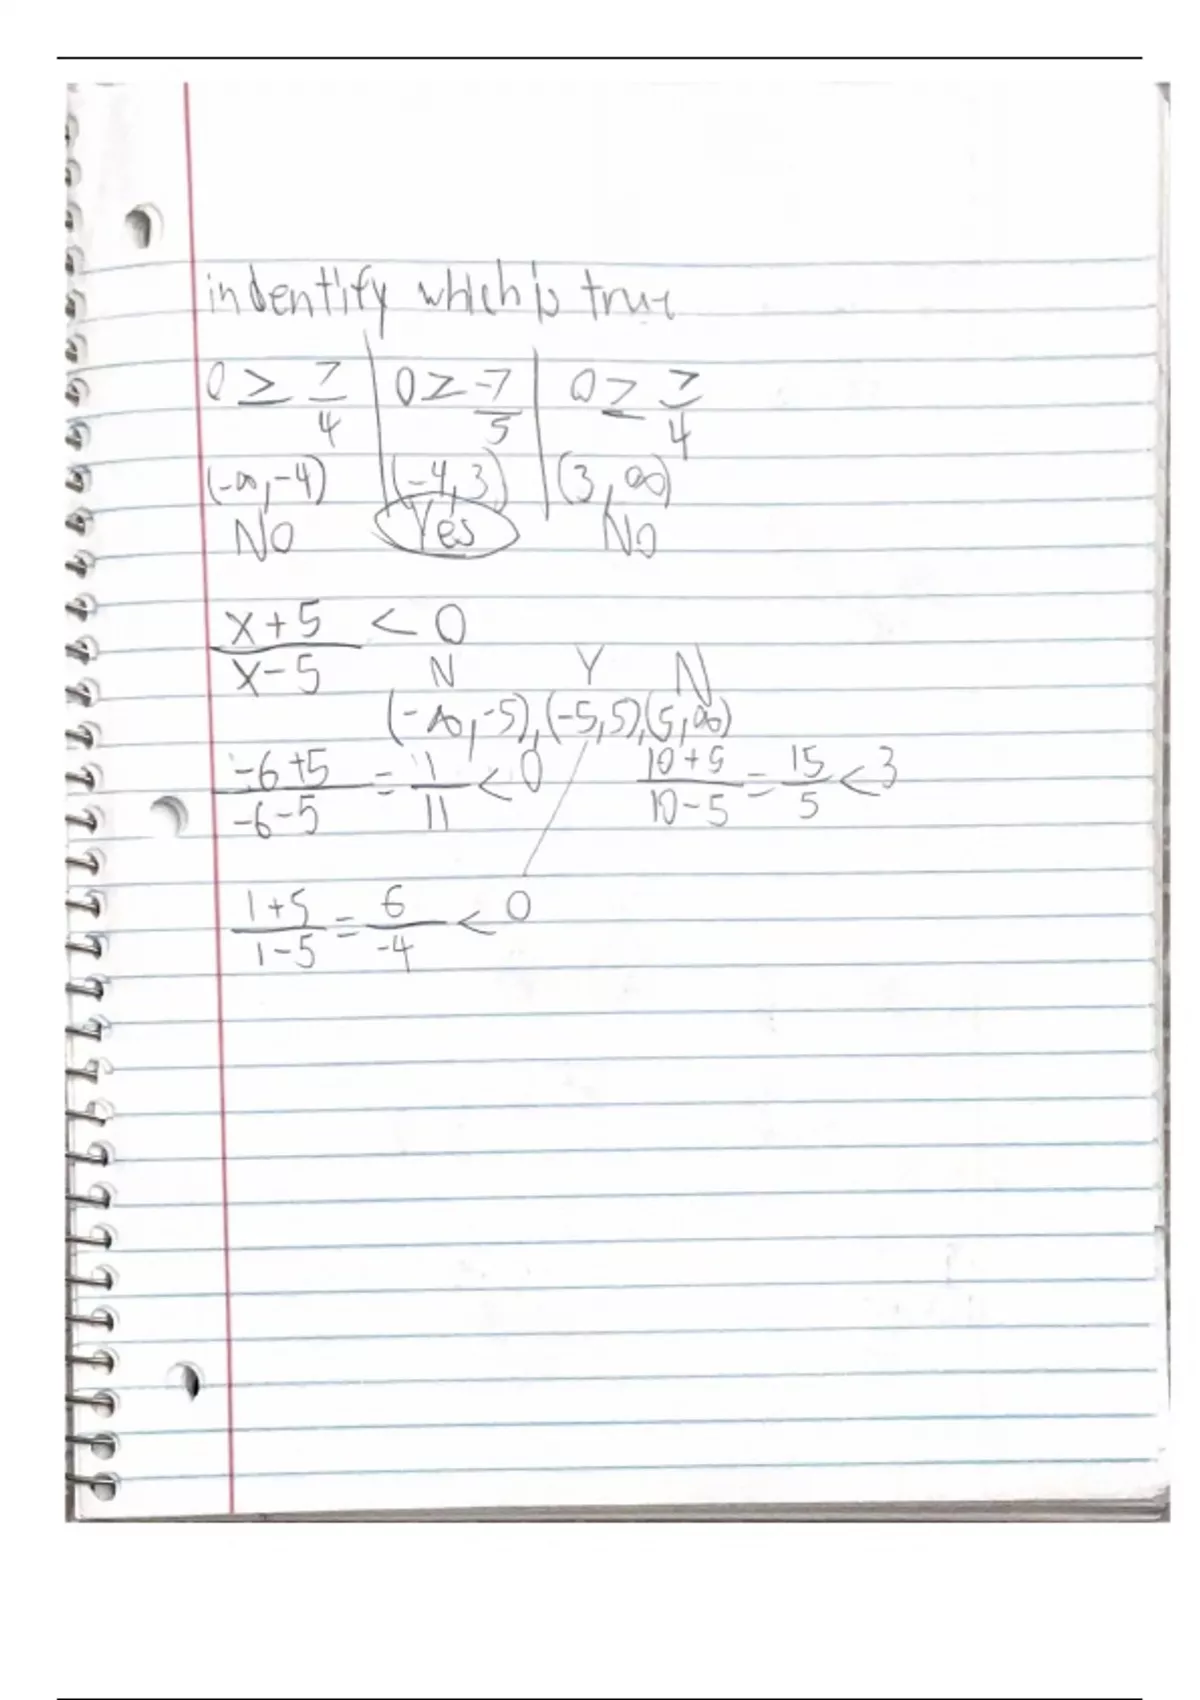 indentify which is true
0 ≥ 7/4 | 0 ≥ -7/5 | 0 ≥ 7/4
(-∞,-4) | (-4,3) | (3,∞)
NO Yes No
x+5/x-5 < 0
N Y N
(-∞,-5),(-5,5),(5,∞)
-6+5/-6-5 = 1/11 < 0 10+5/10-5 = 15/5 < 3
1+5/1-5 = 6/-4 < 0